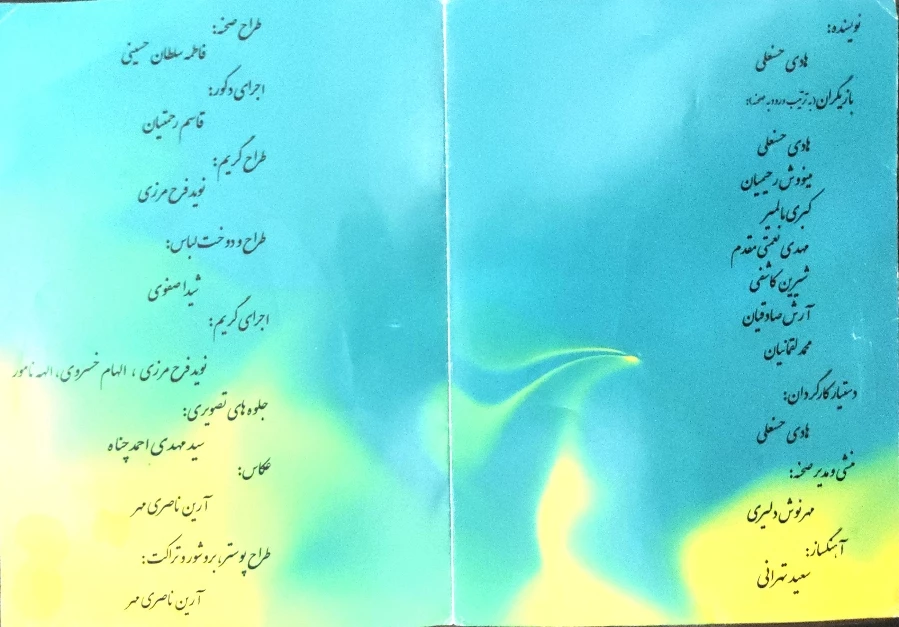 نویسنده:
هادی حسنعلی
بازیگران(به ترتیب ورود به صحنه):
هادی حسنعلی
مینووش رحیمیان
کبری بالمیر
مهدی نعمتی مقدم
شیرین کاشفی
آرش صادقیان
محمد لقمانیان
دستیار کارگردان:
هادی حسنعلی
منشی و مدیر صحنه:
مهرنوش دلیری
آهنگساز:
سعید تهرانی
طراح صحنه:
فاطمه سلطان حسینی
اجرای دکور:
قاسم رحمتیان
طراح گریم:
نوید فرح مرزی
طراح و دوخت لباس:
شیدا صفوی
اجرای گریم:
نوید فرح مرزی ، الهام خسروی، الهه نامور
جلوه های تصویری:
سید مهدی احمدپناه
عکاس:
آرین ناصری مهر
طراح پوستر، بروشور و تراکت:
آرین ناصری مهر